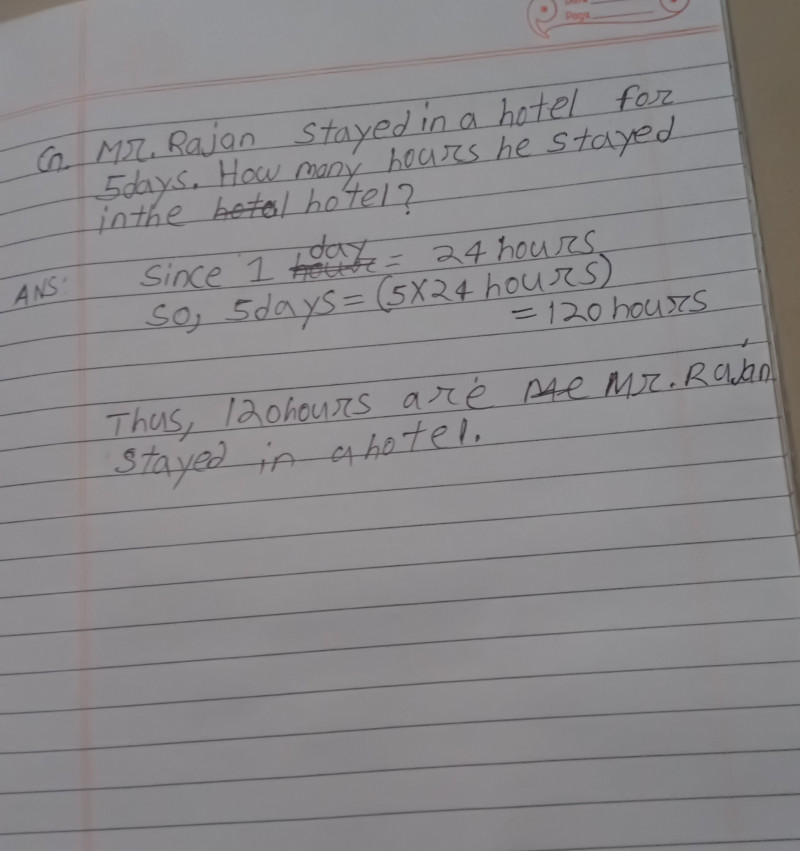 Page
Q. Mr. Rajan stayed in a hotel for
5days. How many hours he stayed
in the hotel?
ANS: Since 1 day = 24 hours
So, 5days = (5X24 hours)
= 120 hours
Thus, 120hours are Mr. Rajan
stayed in a hotel.